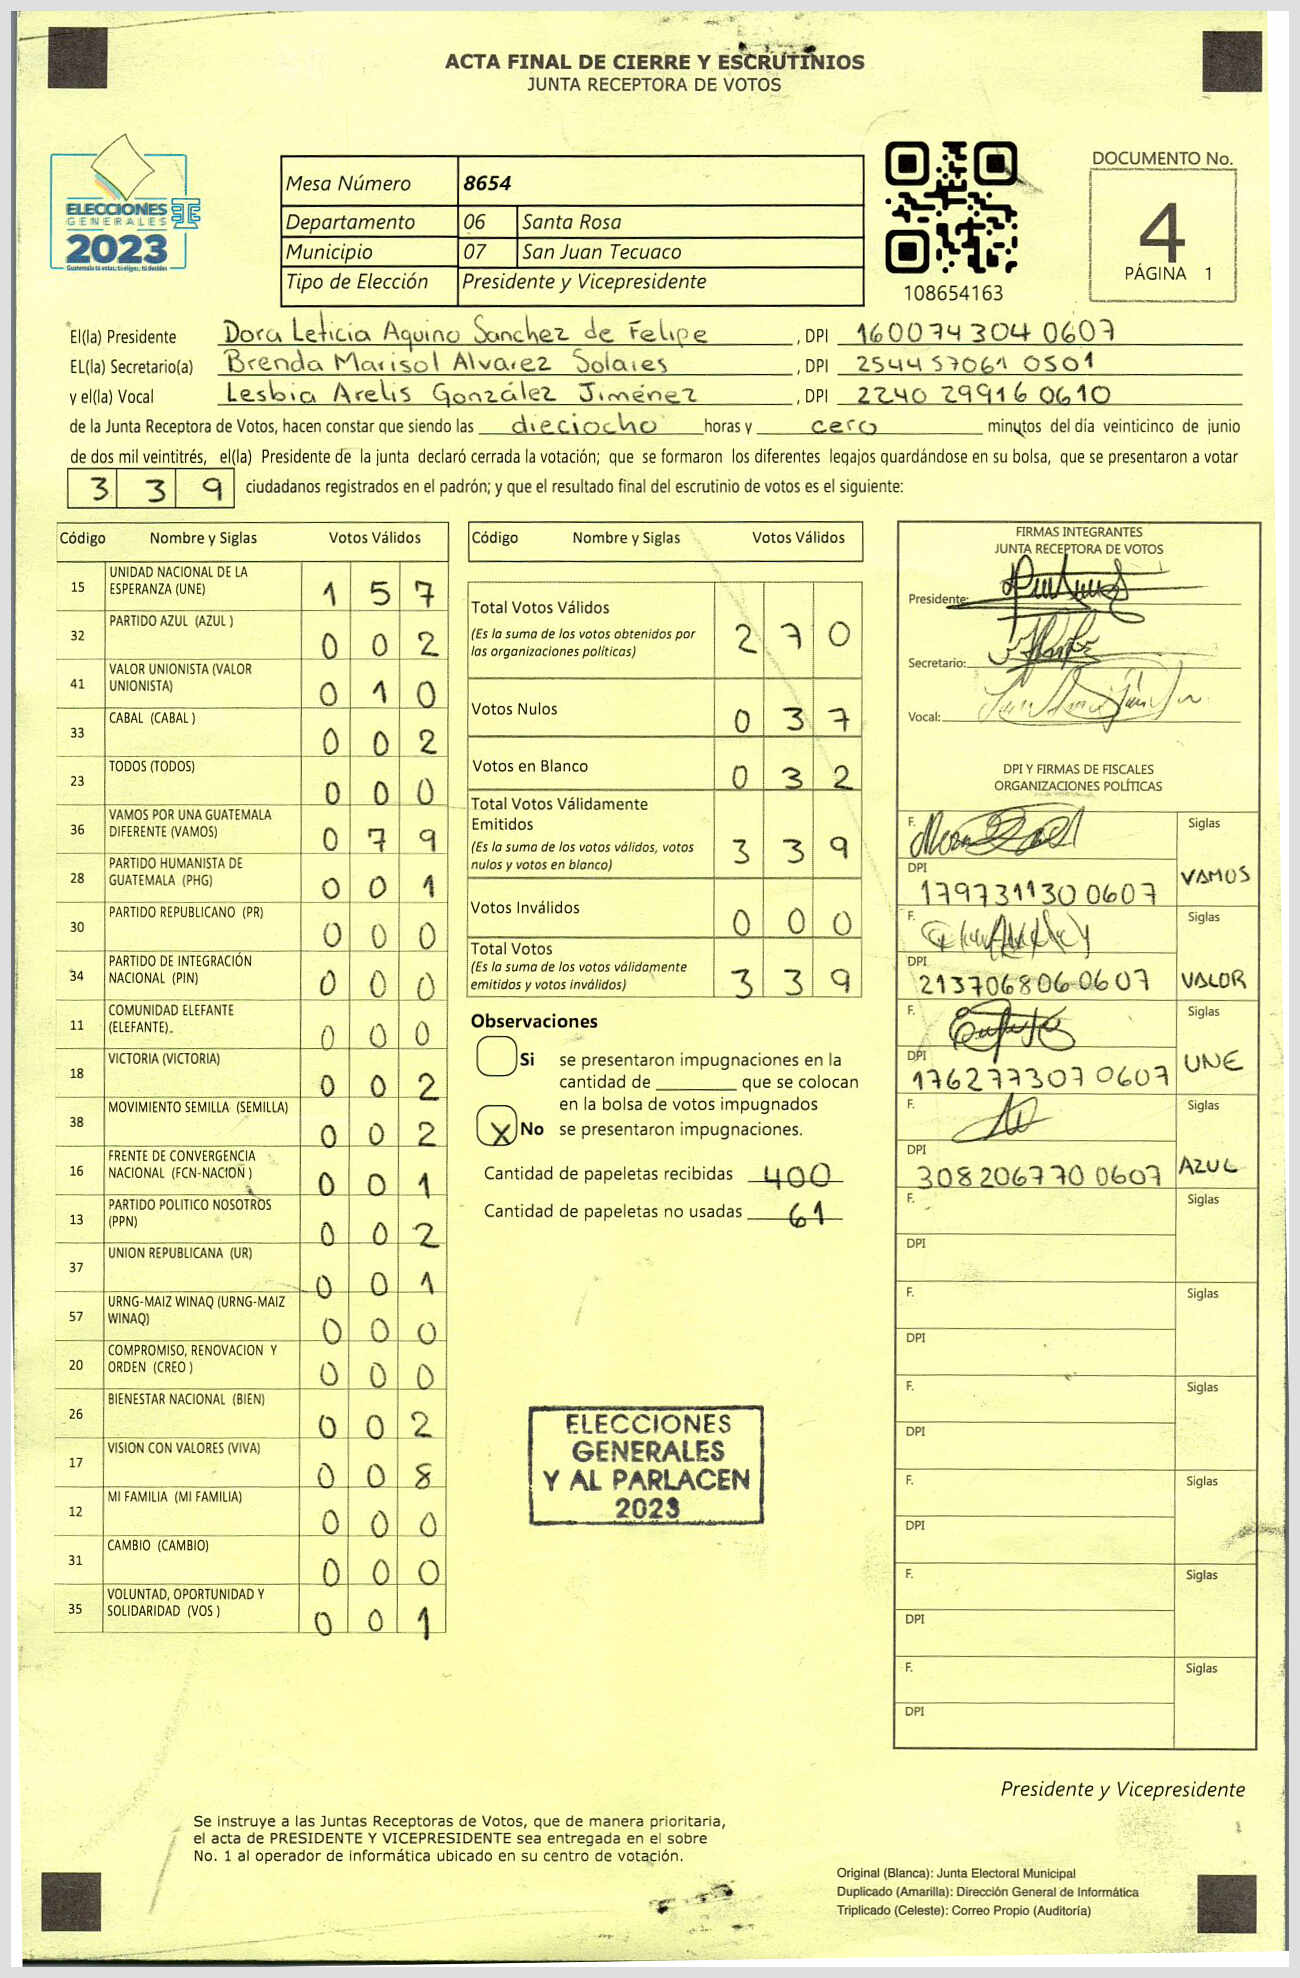 ACTA FINAL DE CIERRE Y ESCRUTINIOS
JUNTA RECEPTORA DE VOTOS
ELECCIONES
GENERALES
2023
Guatemala tú votas, tú eliges, tú decides
Mesa Número 8654
Departamento 06 Santa Rosa
Municipio 07 San Juan Tecuaco
Tipo de Elección Presidente y Vicepresidente
108654163
DOCUMENTO No.
4
PÁGINA 1
El(la) Presidente Dora Leticia Aquino Sanchez de Felipe, DPI 160074304 0607
EL(la) Secretario(a) Brenda Marisol Alvarez Solares, DPI 254457061 0501
y el(la) Vocal Lesbia Arelis González Jiménez, DPI 2240 29916 0610
de la Junta Receptora de Votos, hacen constar que siendo las dieciocho horas y cero minutos del día veinticinco de junio
de dos mil veintitrés, el(la) Presidente de la junta declaró cerrada la votación; que se formaron los diferentes legajos guardándose en su bolsa, que se presentaron a votar
3 3 9 ciudadanos registrados en el padrón; y que el resultado final del escrutinio de votos es el siguiente:
Código Nombre y Siglas Votos Válidos
15 UNIDAD NACIONAL DE LA
ESPERANZA (UNE) 1 5 7
32 PARTIDO AZUL (AZUL ) 0 0 2
41 VALOR UNIONISTA (VALOR
UNIONISTA) 0 1 0
33 CABAL (CABAL ) 0 0 2
23 TODOS (TODOS) 0 0 0
36 VAMOS POR UNA GUATEMALA
DIFERENTE (VAMOS) 0 7 9
28 PARTIDO HUMANISTA DE
GUATEMALA (PHG) 0 0 1
30 PARTIDO REPUBLICANO (PR) 0 0 0
34 PARTIDO DE INTEGRACIÓN
NACIONAL (PIN) 0 0 0
11 COMUNIDAD ELEFANTE
(ELEFANTE) 0 0 0
18 VICTORIA (VICTORIA) 0 0 2
38 MOVIMIENTO SEMILLA (SEMILLA) 0 0 2
16 FRENTE DE CONVERGENCIA
NACIONAL (FCN-NACION ) 0 0 1
13 PARTIDO POLITICO NOSOTROS
(PPN) 0 0 2
37 UNION REPUBLICANA (UR) 0 0 1
57 URNG-MAIZ WINAQ (URNG-MAIZ
WINAQ) 0 0 0
20 COMPROMISO, RENOVACION Y
ORDEN (CREO ) 0 0 0
26 BIENESTAR NACIONAL (BIEN) 0 0 2
17 VISION CON VALORES (VIVA) 0 0 8
12 MI FAMILIA (MI FAMILIA) 0 0 0
31 CAMBIO (CAMBIO) 0 0 0
35 VOLUNTAD, OPORTUNIDAD Y
SOLIDARIDAD (VOS ) 0 0 1
Código Nombre y Siglas Votos Válidos
Total Votos Válidos 2 7 0
(Es la suma de los votos obtenidos por
las organizaciones políticas)
Votos Nulos 0 3 7
Votos en Blanco 0 3 2
Total Votos Válidamente
Emitidos 3 3 9
(Es la suma de los votos válidos, votos
nulos y votos en blanco)
Votos Inválidos 0 0 0
Total Votos 3 3 9
(Es la suma de los votos válidamente
emitidos y votos inválidos)
Observaciones
Si se presentaron impugnaciones en la
cantidad de ________ que se colocan
en la bolsa de votos impugnados
X No se presentaron impugnaciones.
Cantidad de papeletas recibidas 400
Cantidad de papeletas no usadas 61
ELECCIONES
GENERALES
Y AL PARLACEN
2023
FIRMAS INTEGRANTES
JUNTA RECEPTORA DE VOTOS
Presidente:
Secretario:
Vocal:
DPI Y FIRMAS DE FISCALES
ORGANIZACIONES POLÍTICAS
F. Siglas
DPI VAMOS
179731130 0607
F. Siglas
DPI
213706806 0607 VALOR
F. Siglas
DPI UNE
176277307 0607
F. Siglas
DPI
308206770 0607 AZUL
F. Siglas
DPI
F. Siglas
DPI
F. Siglas
DPI
F. Siglas
DPI
F. Siglas
DPI
F. Siglas
DPI
Presidente y Vicepresidente
Se instruye a las Juntas Receptoras de Votos, que de manera prioritaria,
el acta de PRESIDENTE Y VICEPRESIDENTE sea entregada en el sobre
No. 1 al operador de informática ubicado en su centro de votación.
Original (Blanca): Junta Electoral Municipal
Duplicado (Amarilla): Dirección General de Informática
Triplicado (Celeste): Correo Propio (Auditoría)